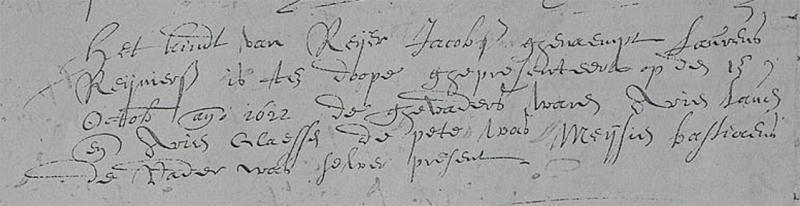 Het kindt van Reijer Jacobs ghenaempt Laurens
Reijniers is ten doope ghepresenteert op den 15
Octob anº 1622 de ghevaders waren Arien
en Arien Claessen de pete was Meijsien bastiaens
de Vader was selver present